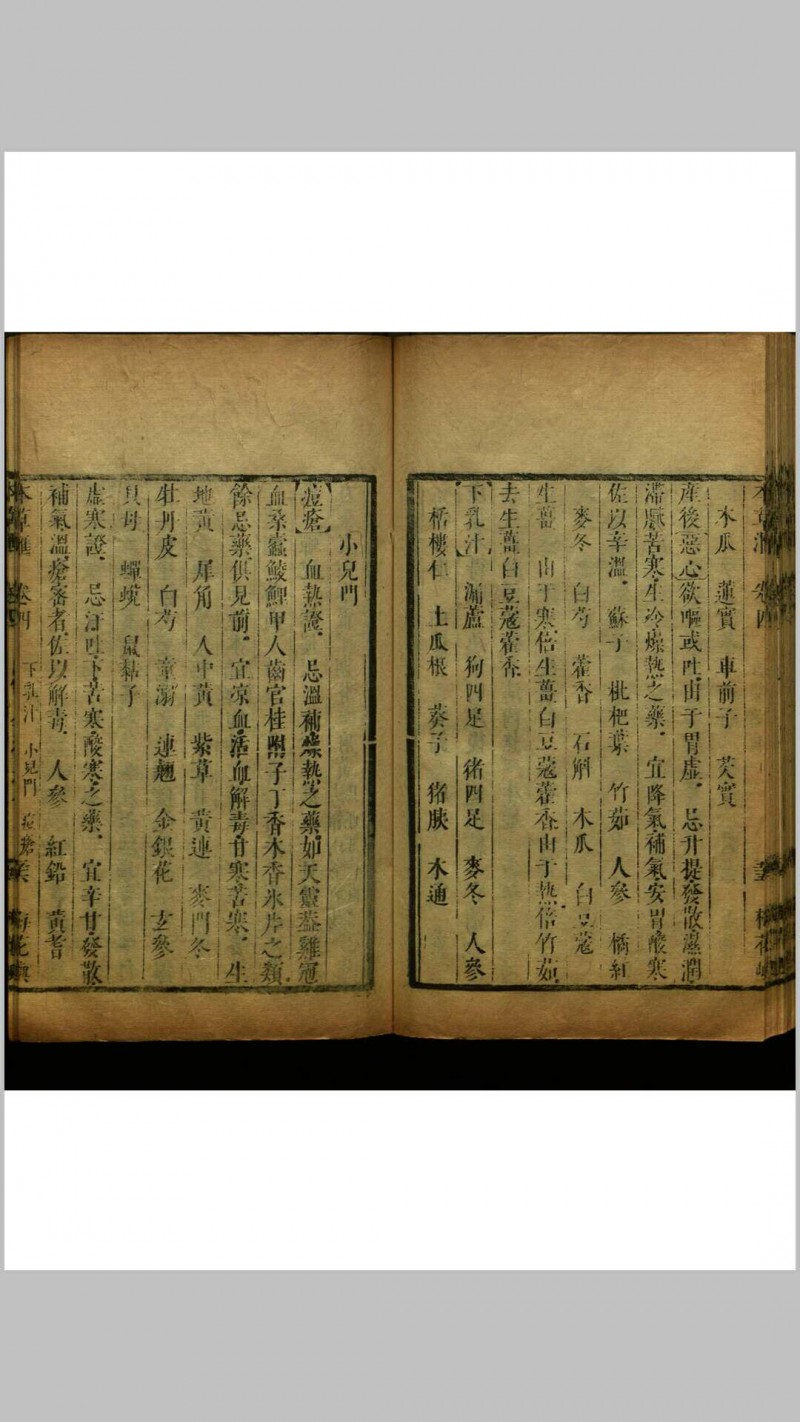 木瓜　蓮實　車前子　芡實
產後惡心欲嘔或吐由于胃虛　忌升提發散濕潤
滯膩苦寒生冷燥熱之藥　宜降氣補氣安胃酸寒
佐以辛溫　蘇子　枇杷葉　竹茹　人參　橘紅
麥冬　白芍　藿香　石斛　木瓜　白豆蔻
生薑　由于寒倍生薑白豆蔻藿香由于熱倍竹茹
去生薑白豆蔻藿香
下乳汁　漏蘆　狗四足　猪四足　麥冬　人參
栝樓仁　土瓜根　葵子　猪胰　木通
小兒門
痘瘡　血熱證　忌溫補燥熱之藥如天靈葢雞冠
血桑蠹鯪鯉甲人齒官桂附子丁香木香氷片之類
餘忌藥俱見前　宜凉血活血解毒甘寒苦寒　生
地黃　犀角　人中黃　紫草　黃連　麥門冬
牡丹皮　白芍　童溺　連翹　金銀花　玄參
貝母　蟬蛻　鼠黏子
虛寒證　忌汗吐下苦寒酸寒之藥　宜辛甘發散
補氣溫瘡審者佐以解毒　人參　紅鉛　黃耆
本草滙　卷四　下乳汁　小兒門　痘瘡